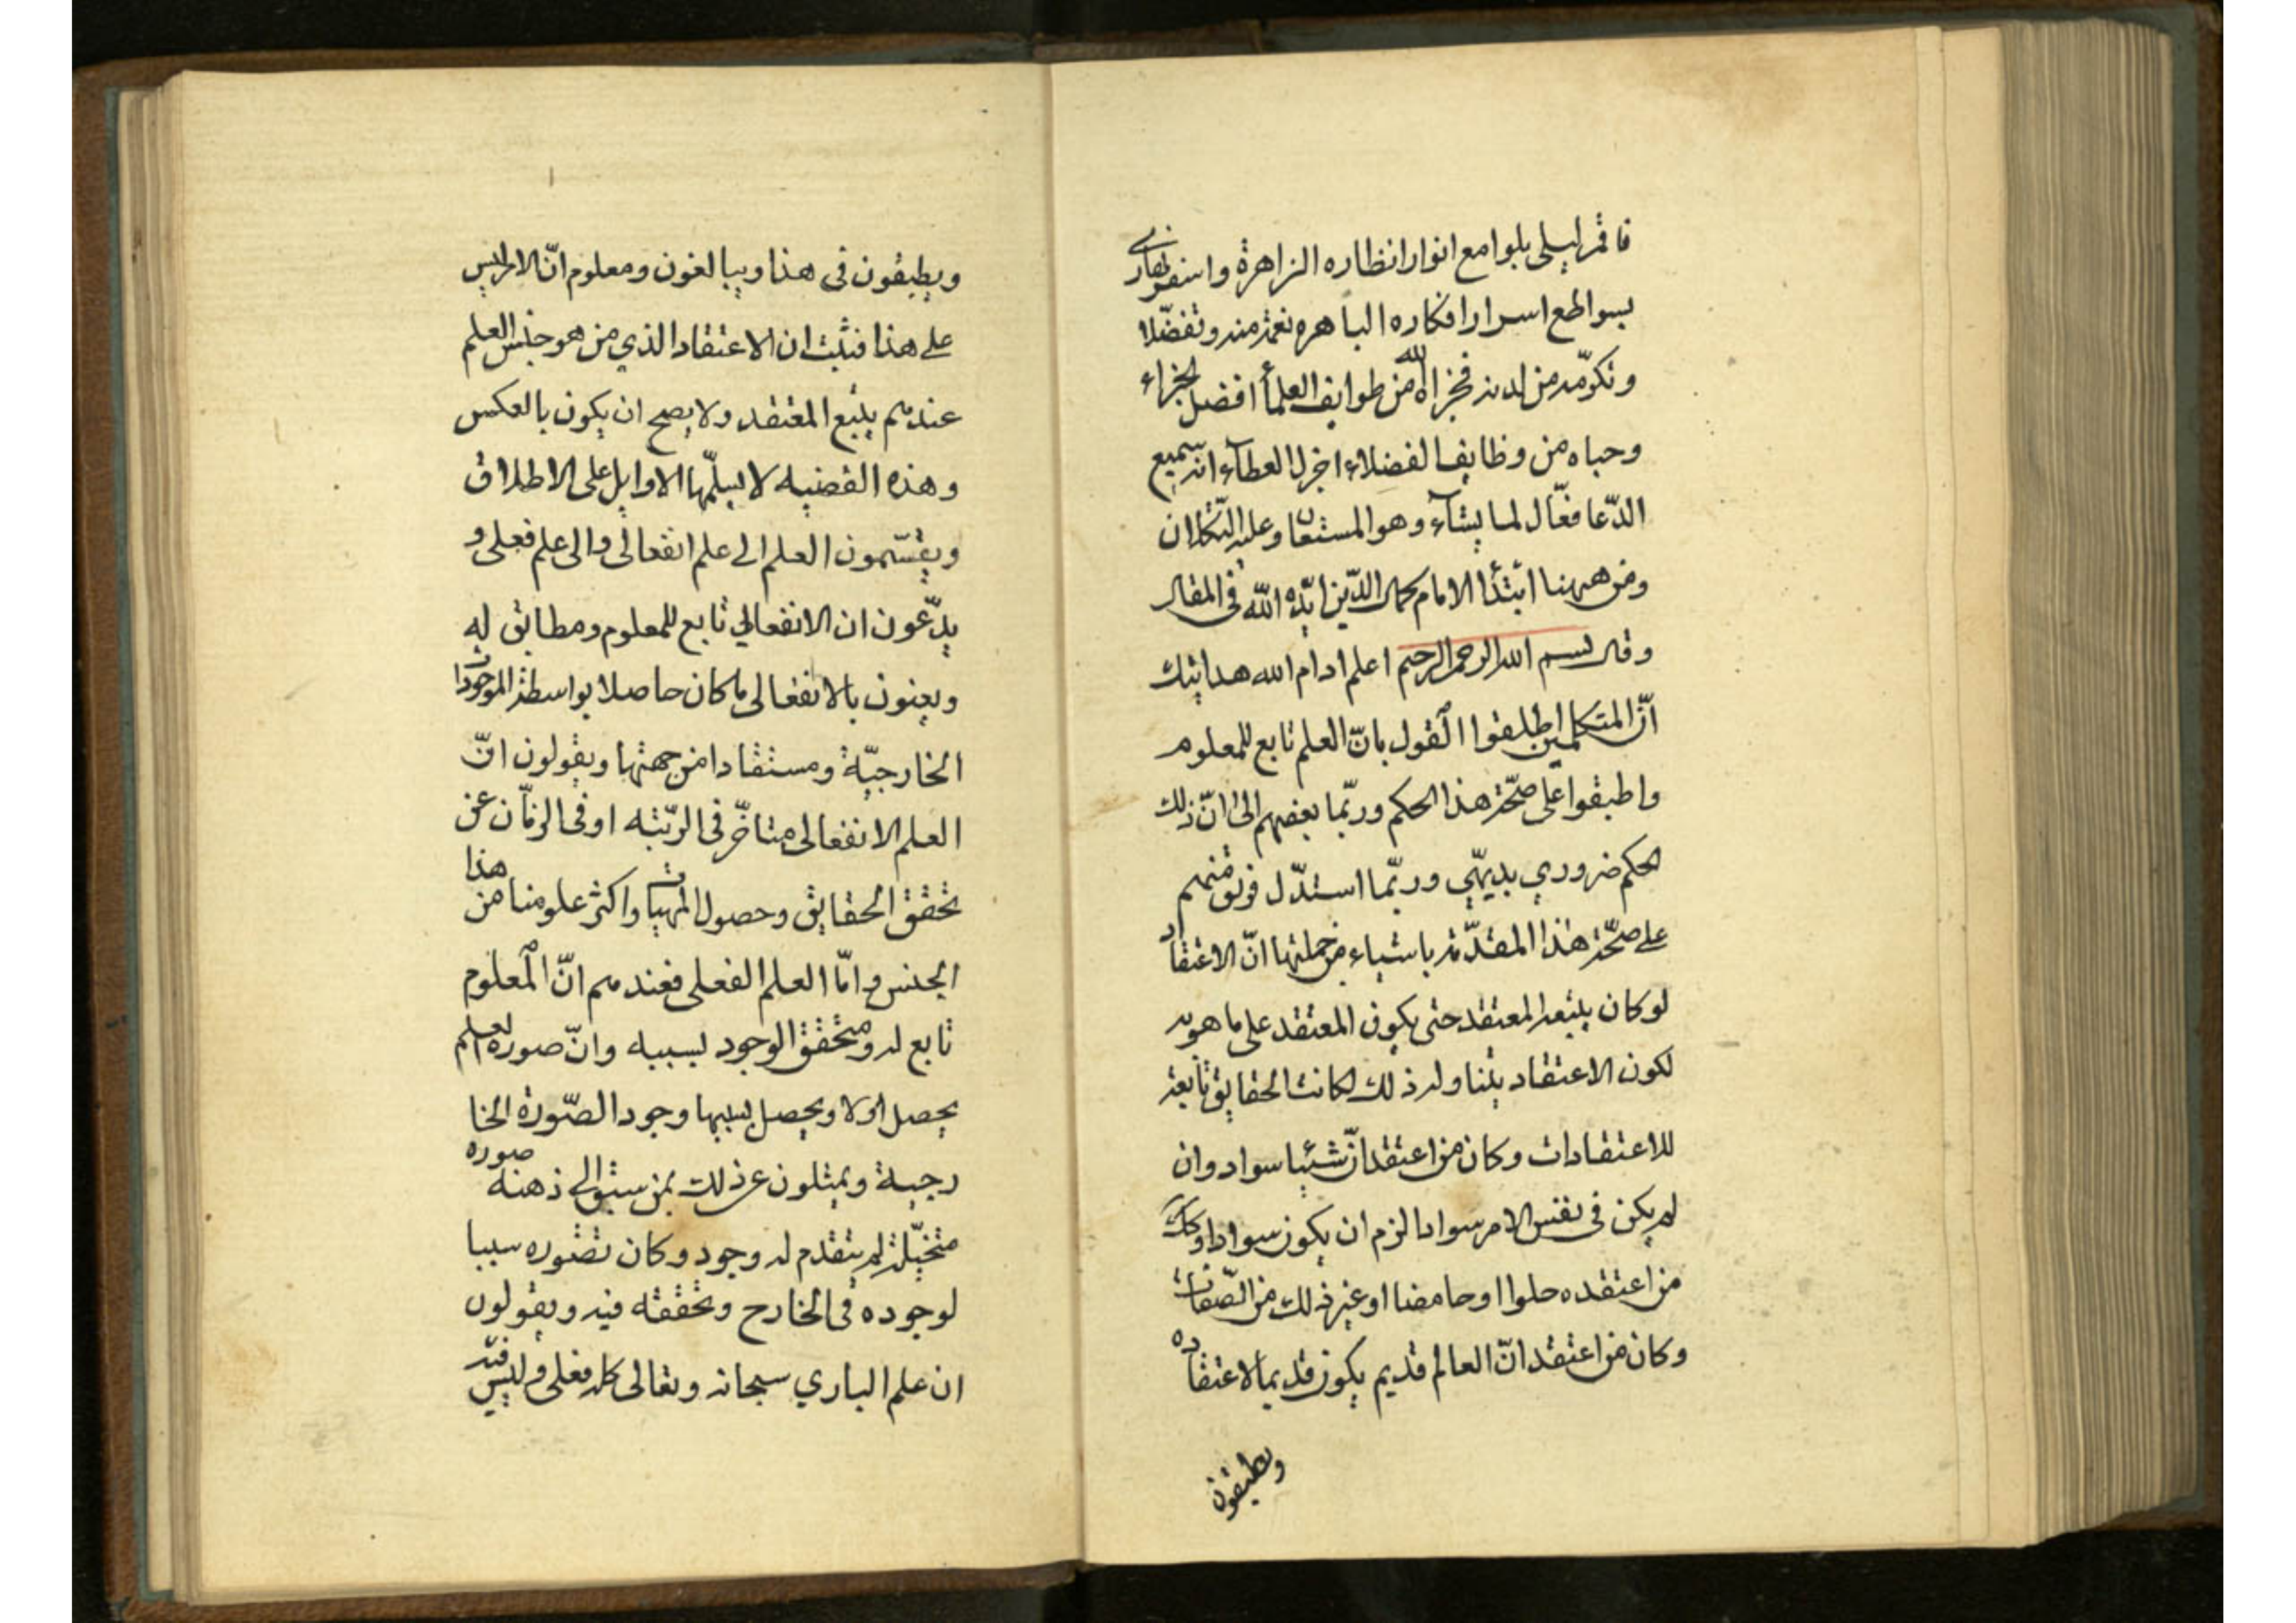 فاقمر ليلي بلوامع انوار انظاره الزاهرة واسفر نهاري
بسواطع اسرار افكاره الباهره نعمة منه وتفضّلا
وتكرّمه من لدنه فجزاه الله من طوايف العلمأ افضل الجزاء
وحباه من وظايف الفضلاء اجزل العطآء انه سميع
الدّعا فعّال لما يشآء وهو المستعان وعليه التكلان
ومن ههنا ابتدأ الامام كمال الدّين ايّده الله في المقال
وقال بسم الله الرحمن الرحيم اعلم ادام الله هدايتك
انّ المتكلمين اطلقوا القول بانّ العلم تابع للمعلوم
واطبقوا على صحّة هذا الحكم وربّما بعضهم الى انّ ذلك
الحكم ضروري بديهي وربّما استدّل فريق منهم
على صحّة هذا المقدّمة باشياء من جملتها انّ الاعتقاد
لو كان يتبعه المعتقد حتى يكون المعتقد على ما هو به
لكون الاعتقاد يتناوله ذلك لكانت الحقايق تابعة
للاعتقادات وكان من اعتقد انّ شيئا سواد وان
لم يكن في نفس الامر سوادا لزم ان يكون سوادا وكك
من اعتقده حلوا او حامضا او غير ذلك من الصّفات
وكان من اعتقد انّ العالم قديم يكون قديما لاعتقاده
ويطبقون
ويطبقون في هذا ويبالغون ومعلوم انّ الامر ليس
على هذا فثبت ان الاعتقاد الذي من هو جنس العلم
عندهم يتبع المعتقد ولا يصح ان يكون بالعكس
وهذه القضيه لا يسلّمها الاوايل على الاطلاق
ويقسّمون العلم الى علم انفعالي والى علم فعلي و
يدّعون ان الانفعالي تابع للمعلوم ومطابق له
ويعنون بالانفعالي ما كان حاصلا بواسطة الموجودات
الخارجيّة ومستفادا من جهتها ويقولون انّ
العلم الانفعالي متاخّر في الرتبه او في الزمان عن
تحقق الحقايق وحصول المهيات واكثر علومنا من هذا
الجنس وامّا العلم الفعلي فعندهم انّ المعلوم
تابع له ومتحقق الوجود بسببه وانّ صورة العلم
يحصل اولا ويحصل بسببها وجود الصّورة الخا
رجية ويمثلون عن ذلك بمن سبق الى ذهنه صوره
متخيّلة لم يتقدم له وجود وكان تصوره سببا
لوجوده في الخارج وتحققه فيه ويقولون
ان علم الباري سبحانه وتعالى كله فعلي وليس فيه